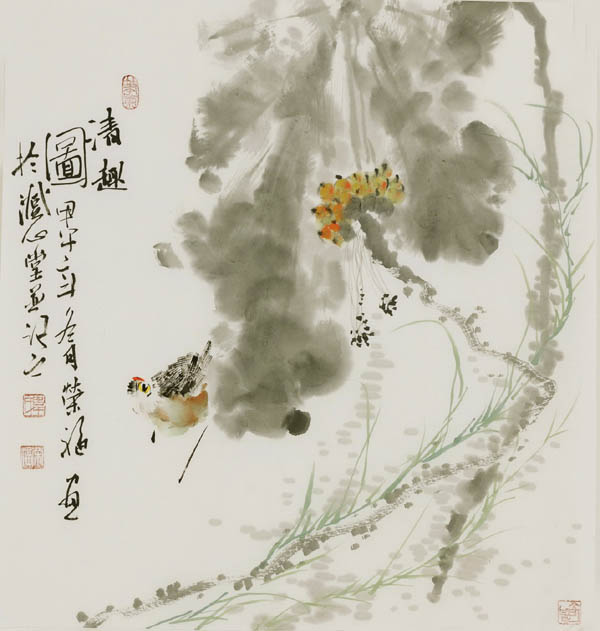 清趣
圖 甲午之年冬月 榮海 画
於澂心堂並記之